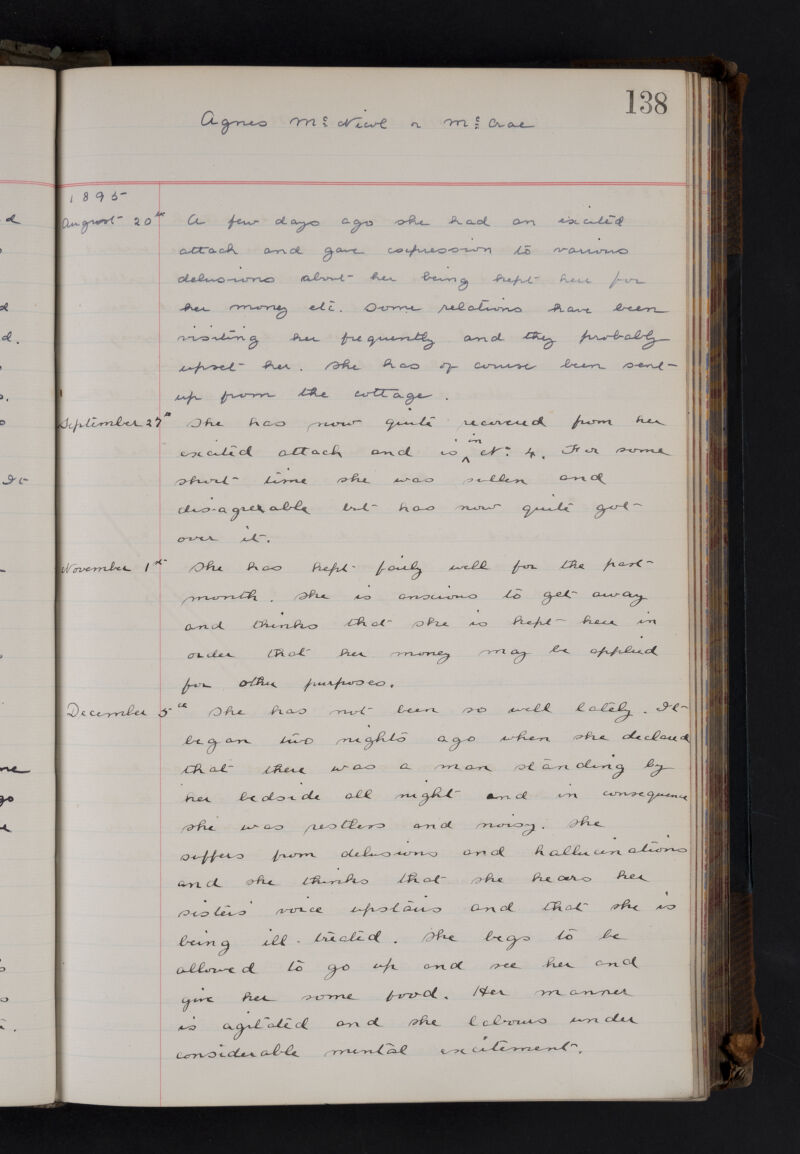 138
Agnes Mc Nicol or Mc Crae
1895
August 20th A few days ago she had an excited
attack and gave expression to various
delusions about her being kept here for
her money etc. Some relations have been
visiting her frequently and they probably
upset her. She has of course been sent
up from the cottage.
September 27th She has now quite recovered from her
excited attack and is in No. 4. For some
short time she was sullen and
disagreeable but has now quite got
over it.
November 1st She has kept fairly well for the past
month. She is anxious to get away
and thinks that she is kept here in
order that her money may be applied
for other purposes.
December 5th She has not been so well lately. It
began two nights ago when she declared
that there was a man standing by
her bedside all night and in consequence
she was restless and noisy. She
suffers from delusions and hallucinations
and she thinks that she hears her
sisters' voice upstairs and that she is
being ill-treated. She begs to be
allowed to go up and see her and
give her some food. Her manner
is agitated and she labours under
considerable mental excitement.